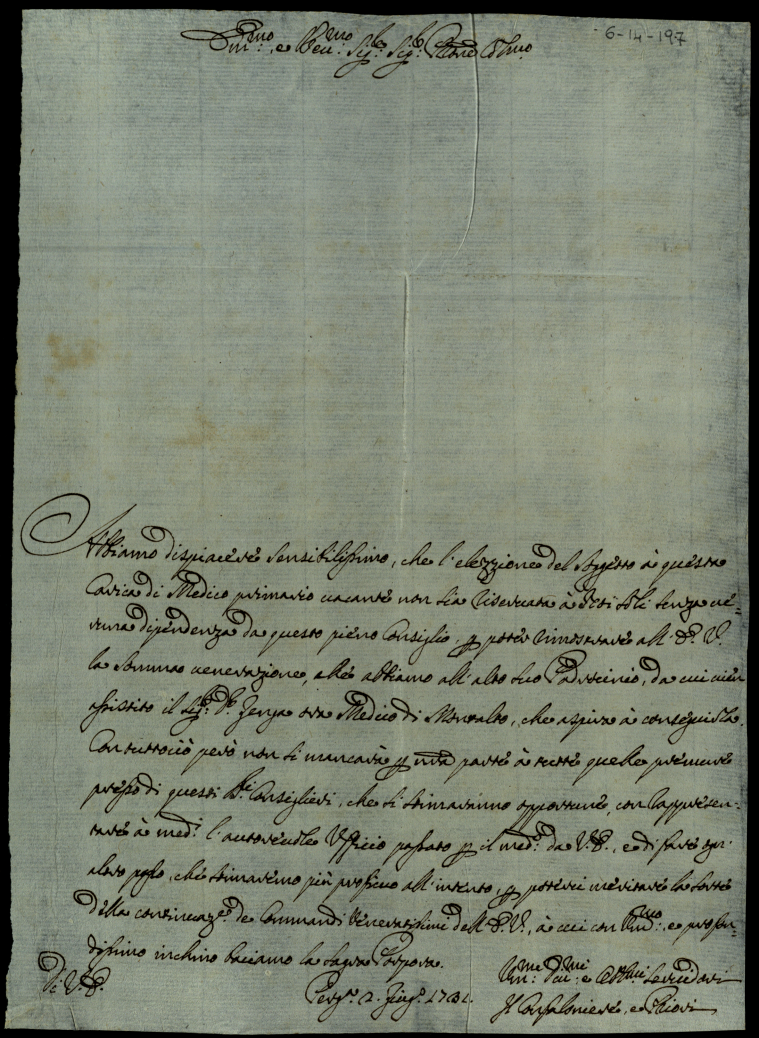 6-14-197
Em.mo, e Rev.mo Sig.r Sig.r P'rone Col.mo
Abbiamo dispiacere sensibilissimo, che l'elezzione del Soggetto à questa
Carica di Medico primario vacante non sia riservata à Noi soli senza ve=
runa dipendenza da questo pieno Consiglio, p poter rimostrare all' E. V.
la somma venerazione, che abbiamo all'alto suo Padrocinio, da cui vien
assistito il Sig.r D.r Zenga ora Medico di Montalto, che aspira à conseguirla.
Con tuttociò però non si mancarà p nra parte à tutte quelle premure
presso di questi SS.ri Consiglieri, che si stimaranno opportune, con rappresen=
tare à med.i l'autorevole Ufficio passato p il med.o da V. E., e di fare ogn'
altro passo, che stimaremo più proficuo all'intento, p poterci meritare la sorte
della continuaz.e de Commandi Veneratissimi dell'E. V., à cui con Um.mo, e profon=
dissimo inchino baciamo la Sagra Porpora.
Di V. E.
Perg.a 2. Giug.o 1731.
Um.mi Dev.mi e Obb.mi Servidori
Il Confaloniere, e Priori